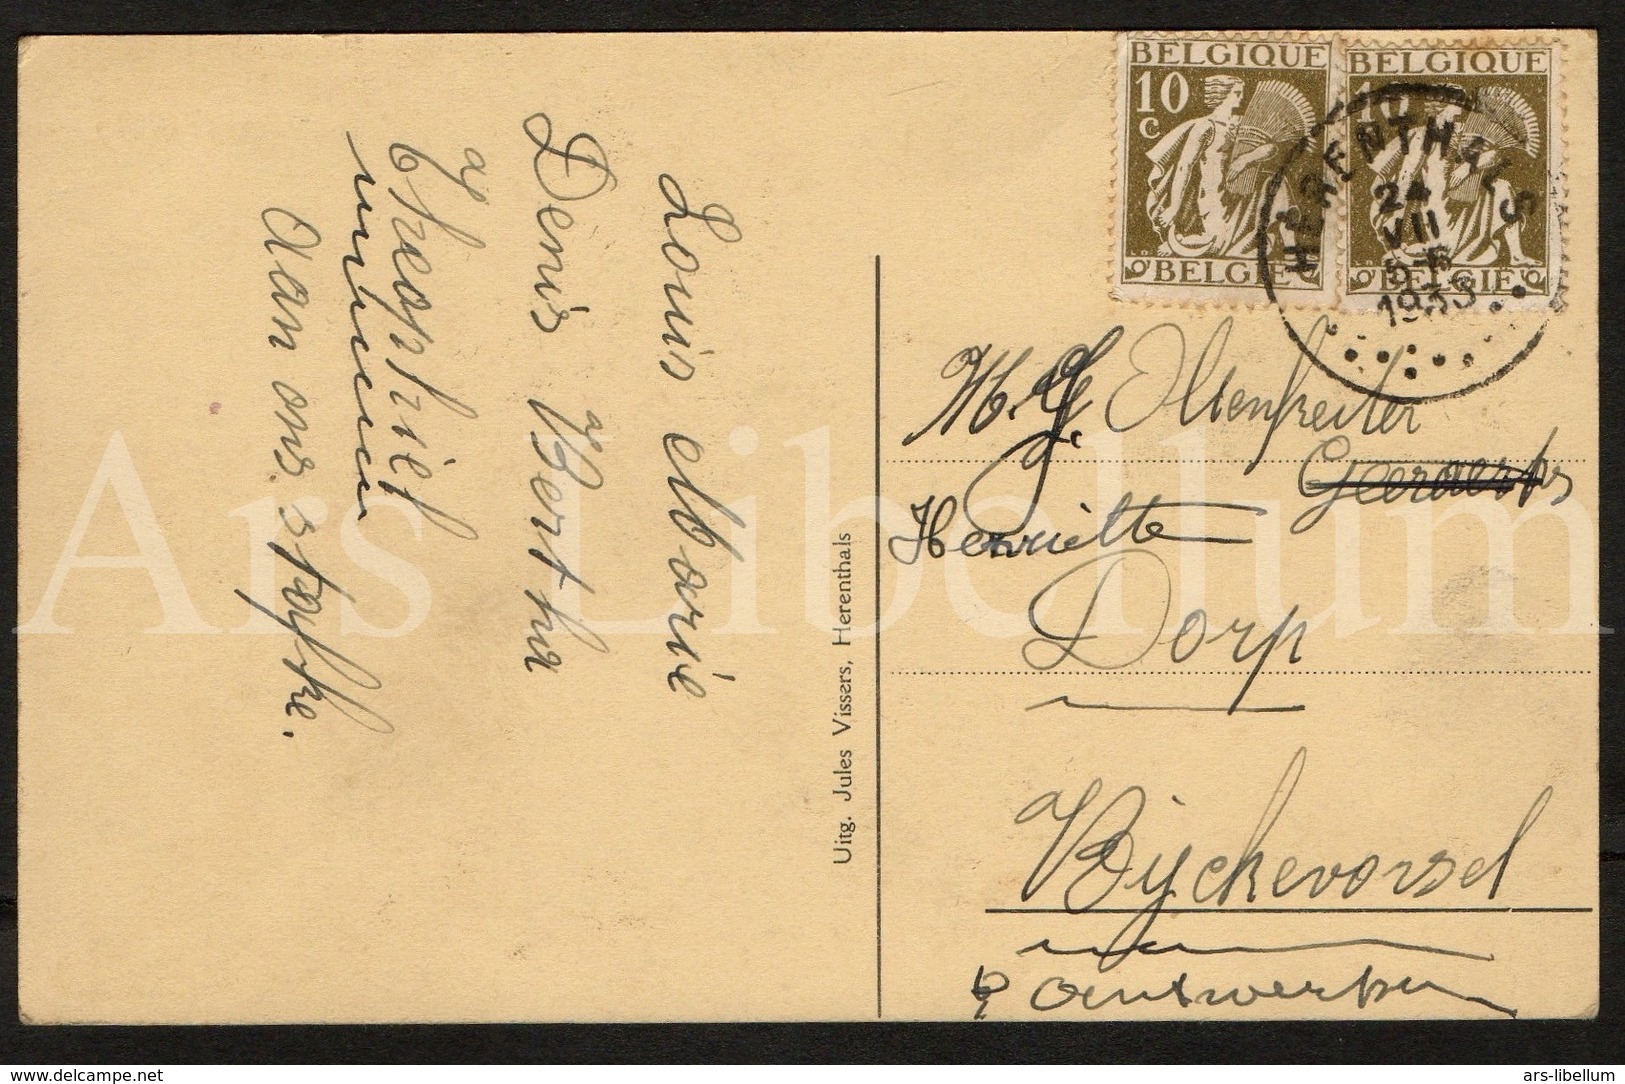 Louis Marie
Denis & Bertha
& Theophiel
Aan ons stoffke.
Uitg. Jules Vissers, Herenthals
BELGIQUE
10
c
BELGIE
BELGIQUE
10
BELGIE
HERENTHALS
24
VII
1933
M. J. Olienheiter
Geeraerts
Henriette
Dorp
Ryckevorsel
Antwerpen
Ars Libellum
www.delcampe.net
ars-libellum